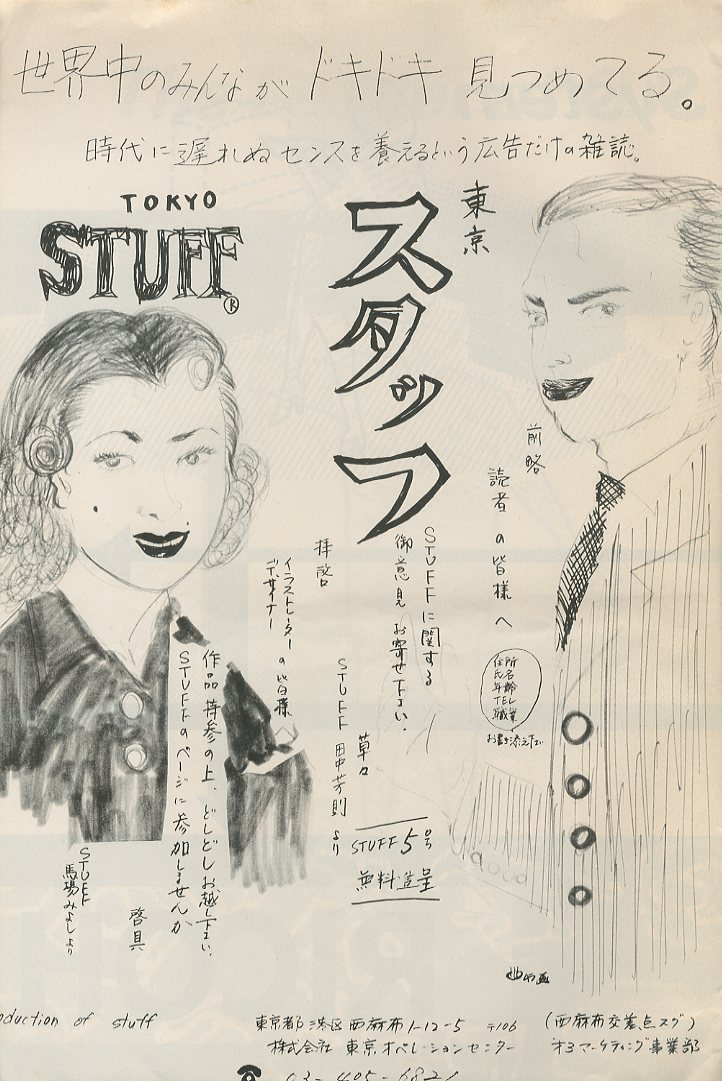 世界中のみんなが ドキドキ 見つめてる。
時代に遅れぬセンスを養えるという広告だけの雑誌。
TOKYO
STUFF
®
東京
スタッフ
前略
読者の皆様へ
STUFFに関する
御意見お寄せ下さい。
草々
STUFF 田中芳則より
住所
氏名
年齢
TEL
職業
お書き添え下さい
拝啓
イラストレーター
デザイナー
の皆様
作品持参の上、どしどしお越し下さい。
STUFFのページに参加しませんか
啓具
STUFF
馬場みよしより
STUFF 5号
無料進呈
oduction of stuff
東京都港区西麻布1-12-5 〒106 (西麻布交差点スグ)
株式会社 東京オペレーションセンター オ3マーケティング事業部
03-405-6821